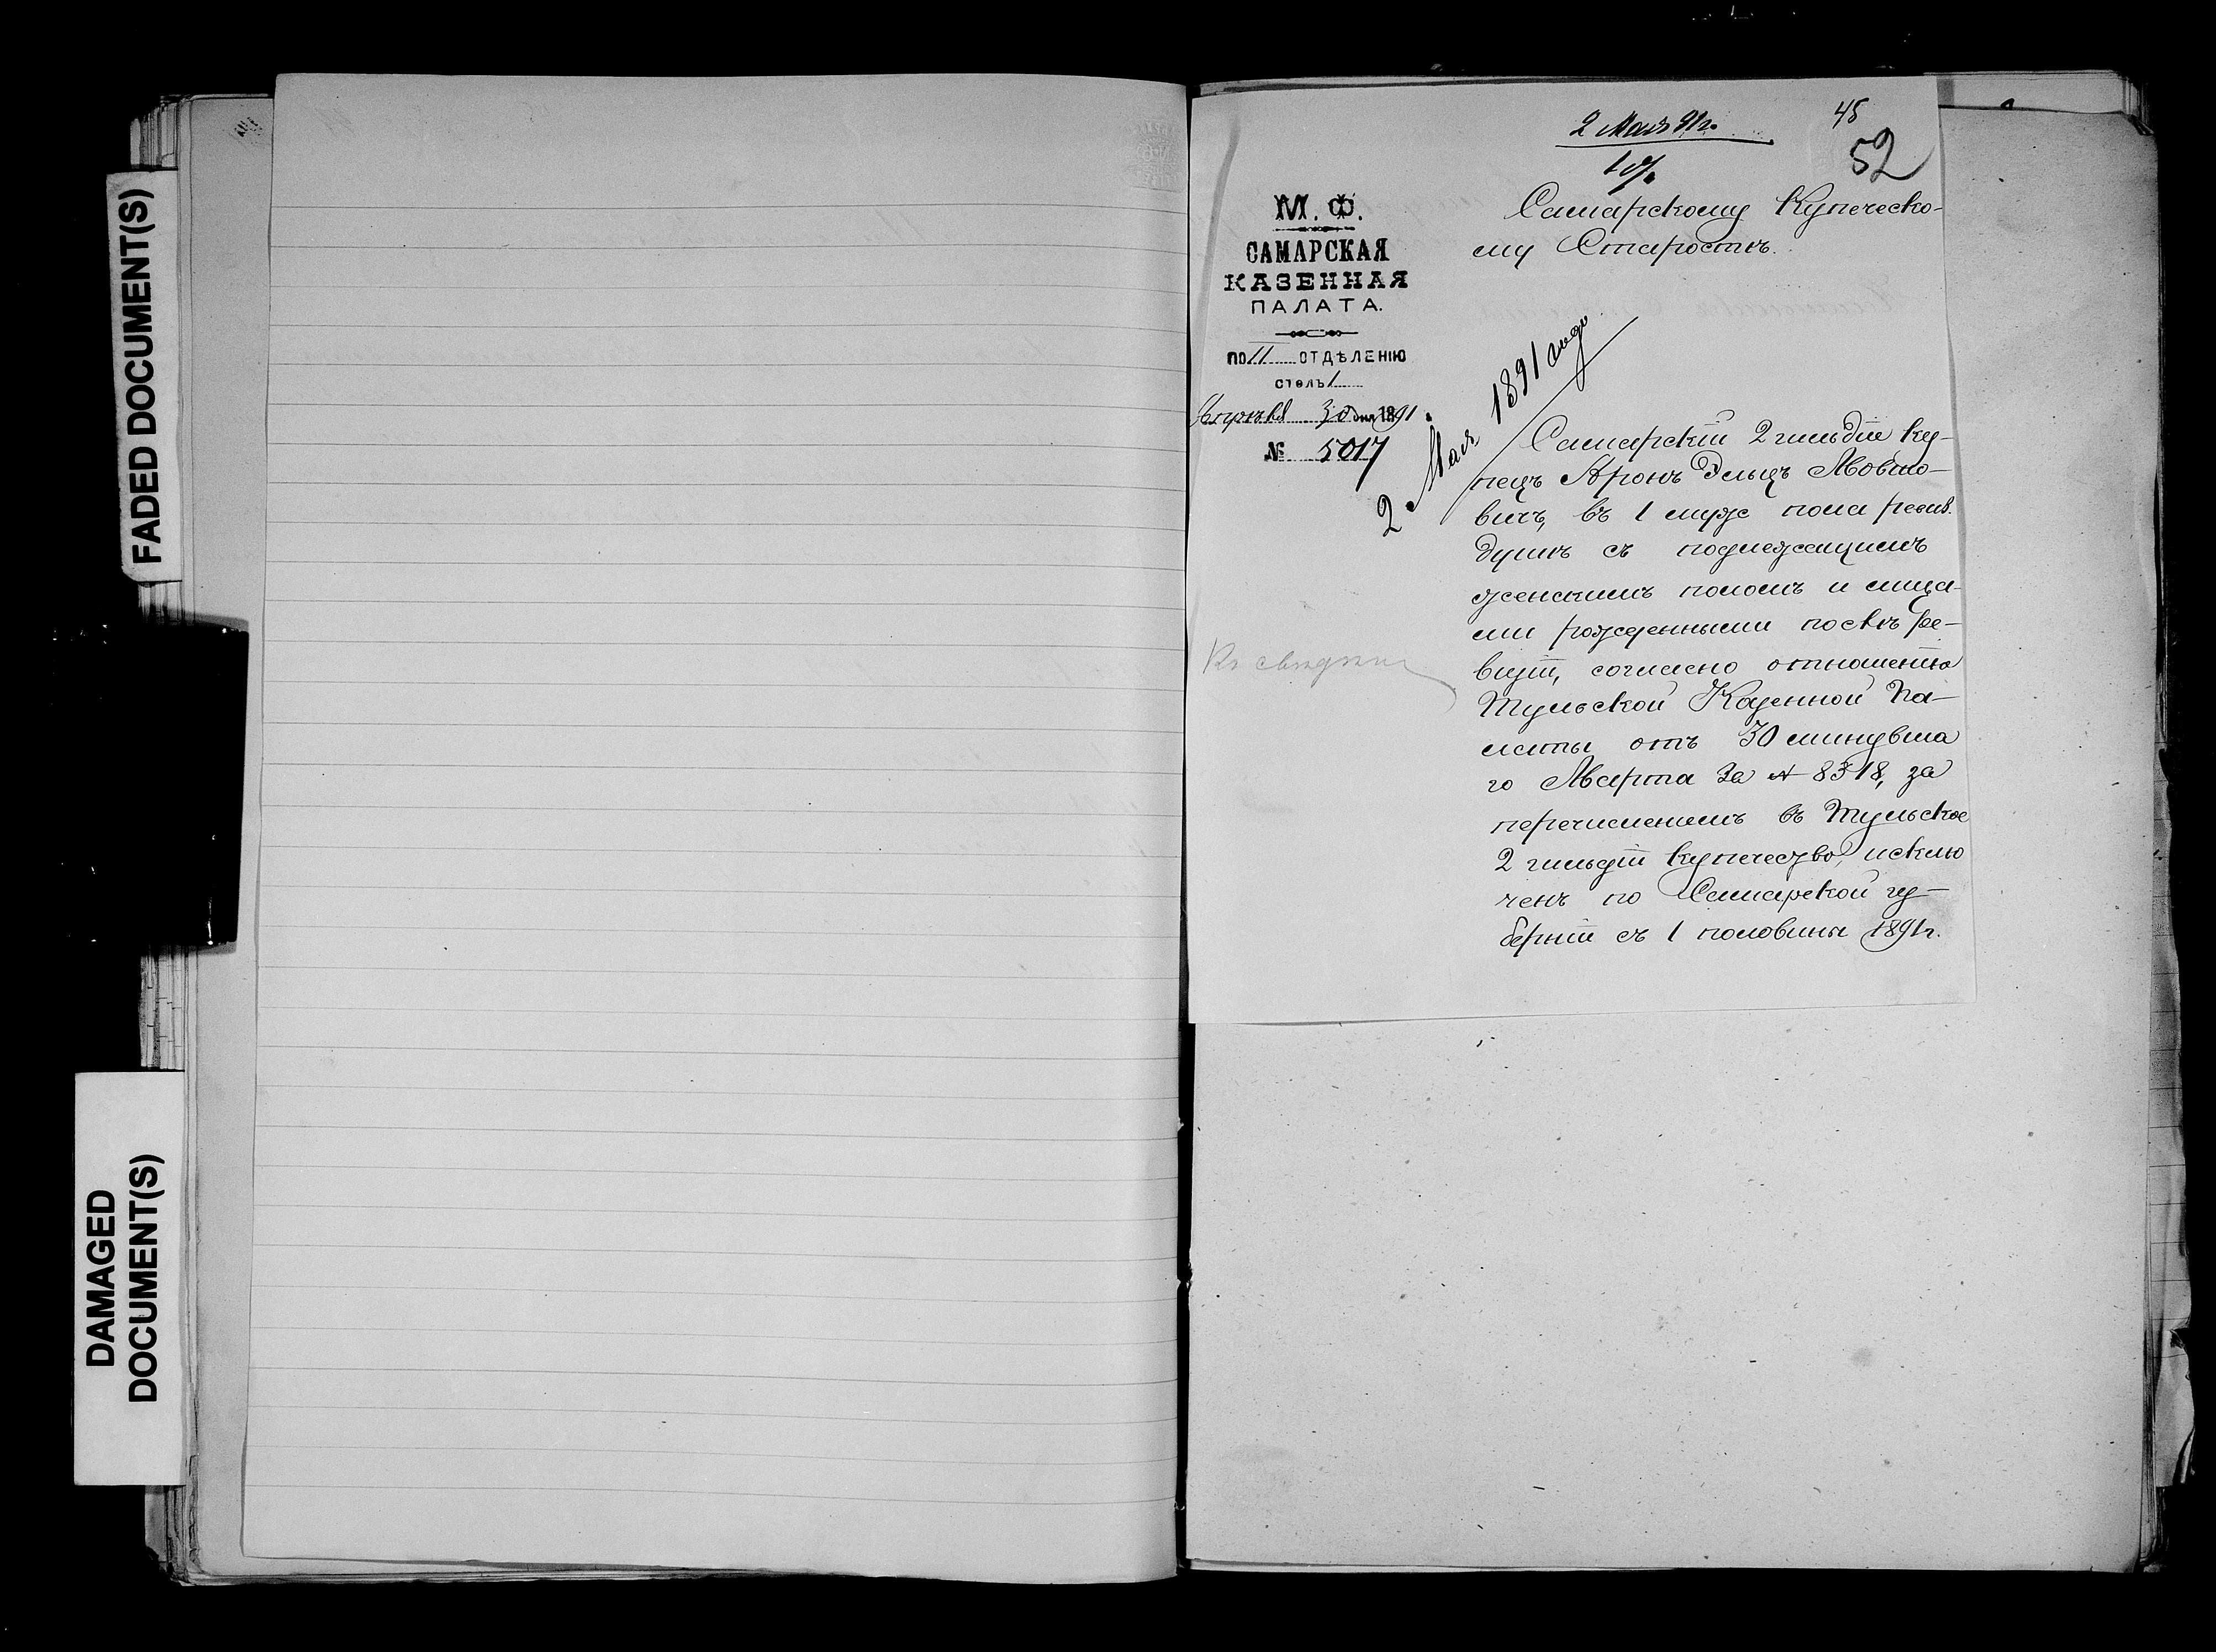 FADED DOCUMENT(S)
DAMAGED
DOCUMENT(S)
2 Мая 91 г.
45
52
М. Ф.
САМАРСКАЯ
КАЗЕННАЯ
ПАЛАТА.
ПО II ОТДѢЛЕНІЮ
столъ 1
Апрѣля 30 дня 1891
№ 5017
2 Мая 1891 года
Къ свѣдѣнію
Самарскому Купеческо-
му Старостѣ.
Самарскій 2 гильдіи ку-
пецъ Аронъ Эльцъ Мовшо-
вичъ, въ 1 муж пола ревиз.
душѣ съ подлежащимъ
женскимъ поломъ и лица-
ми рожденными послѣ ре-
визіи, согласно отношенію
Тульской Казенной Па-
латы отъ 30 минувша
го Марта за № 8318, за
перечисленіемъ въ Тульское
2 гильдіи купечество, исклю
ченъ по Самарской гу-
берніи съ 1 половины 1891 г.